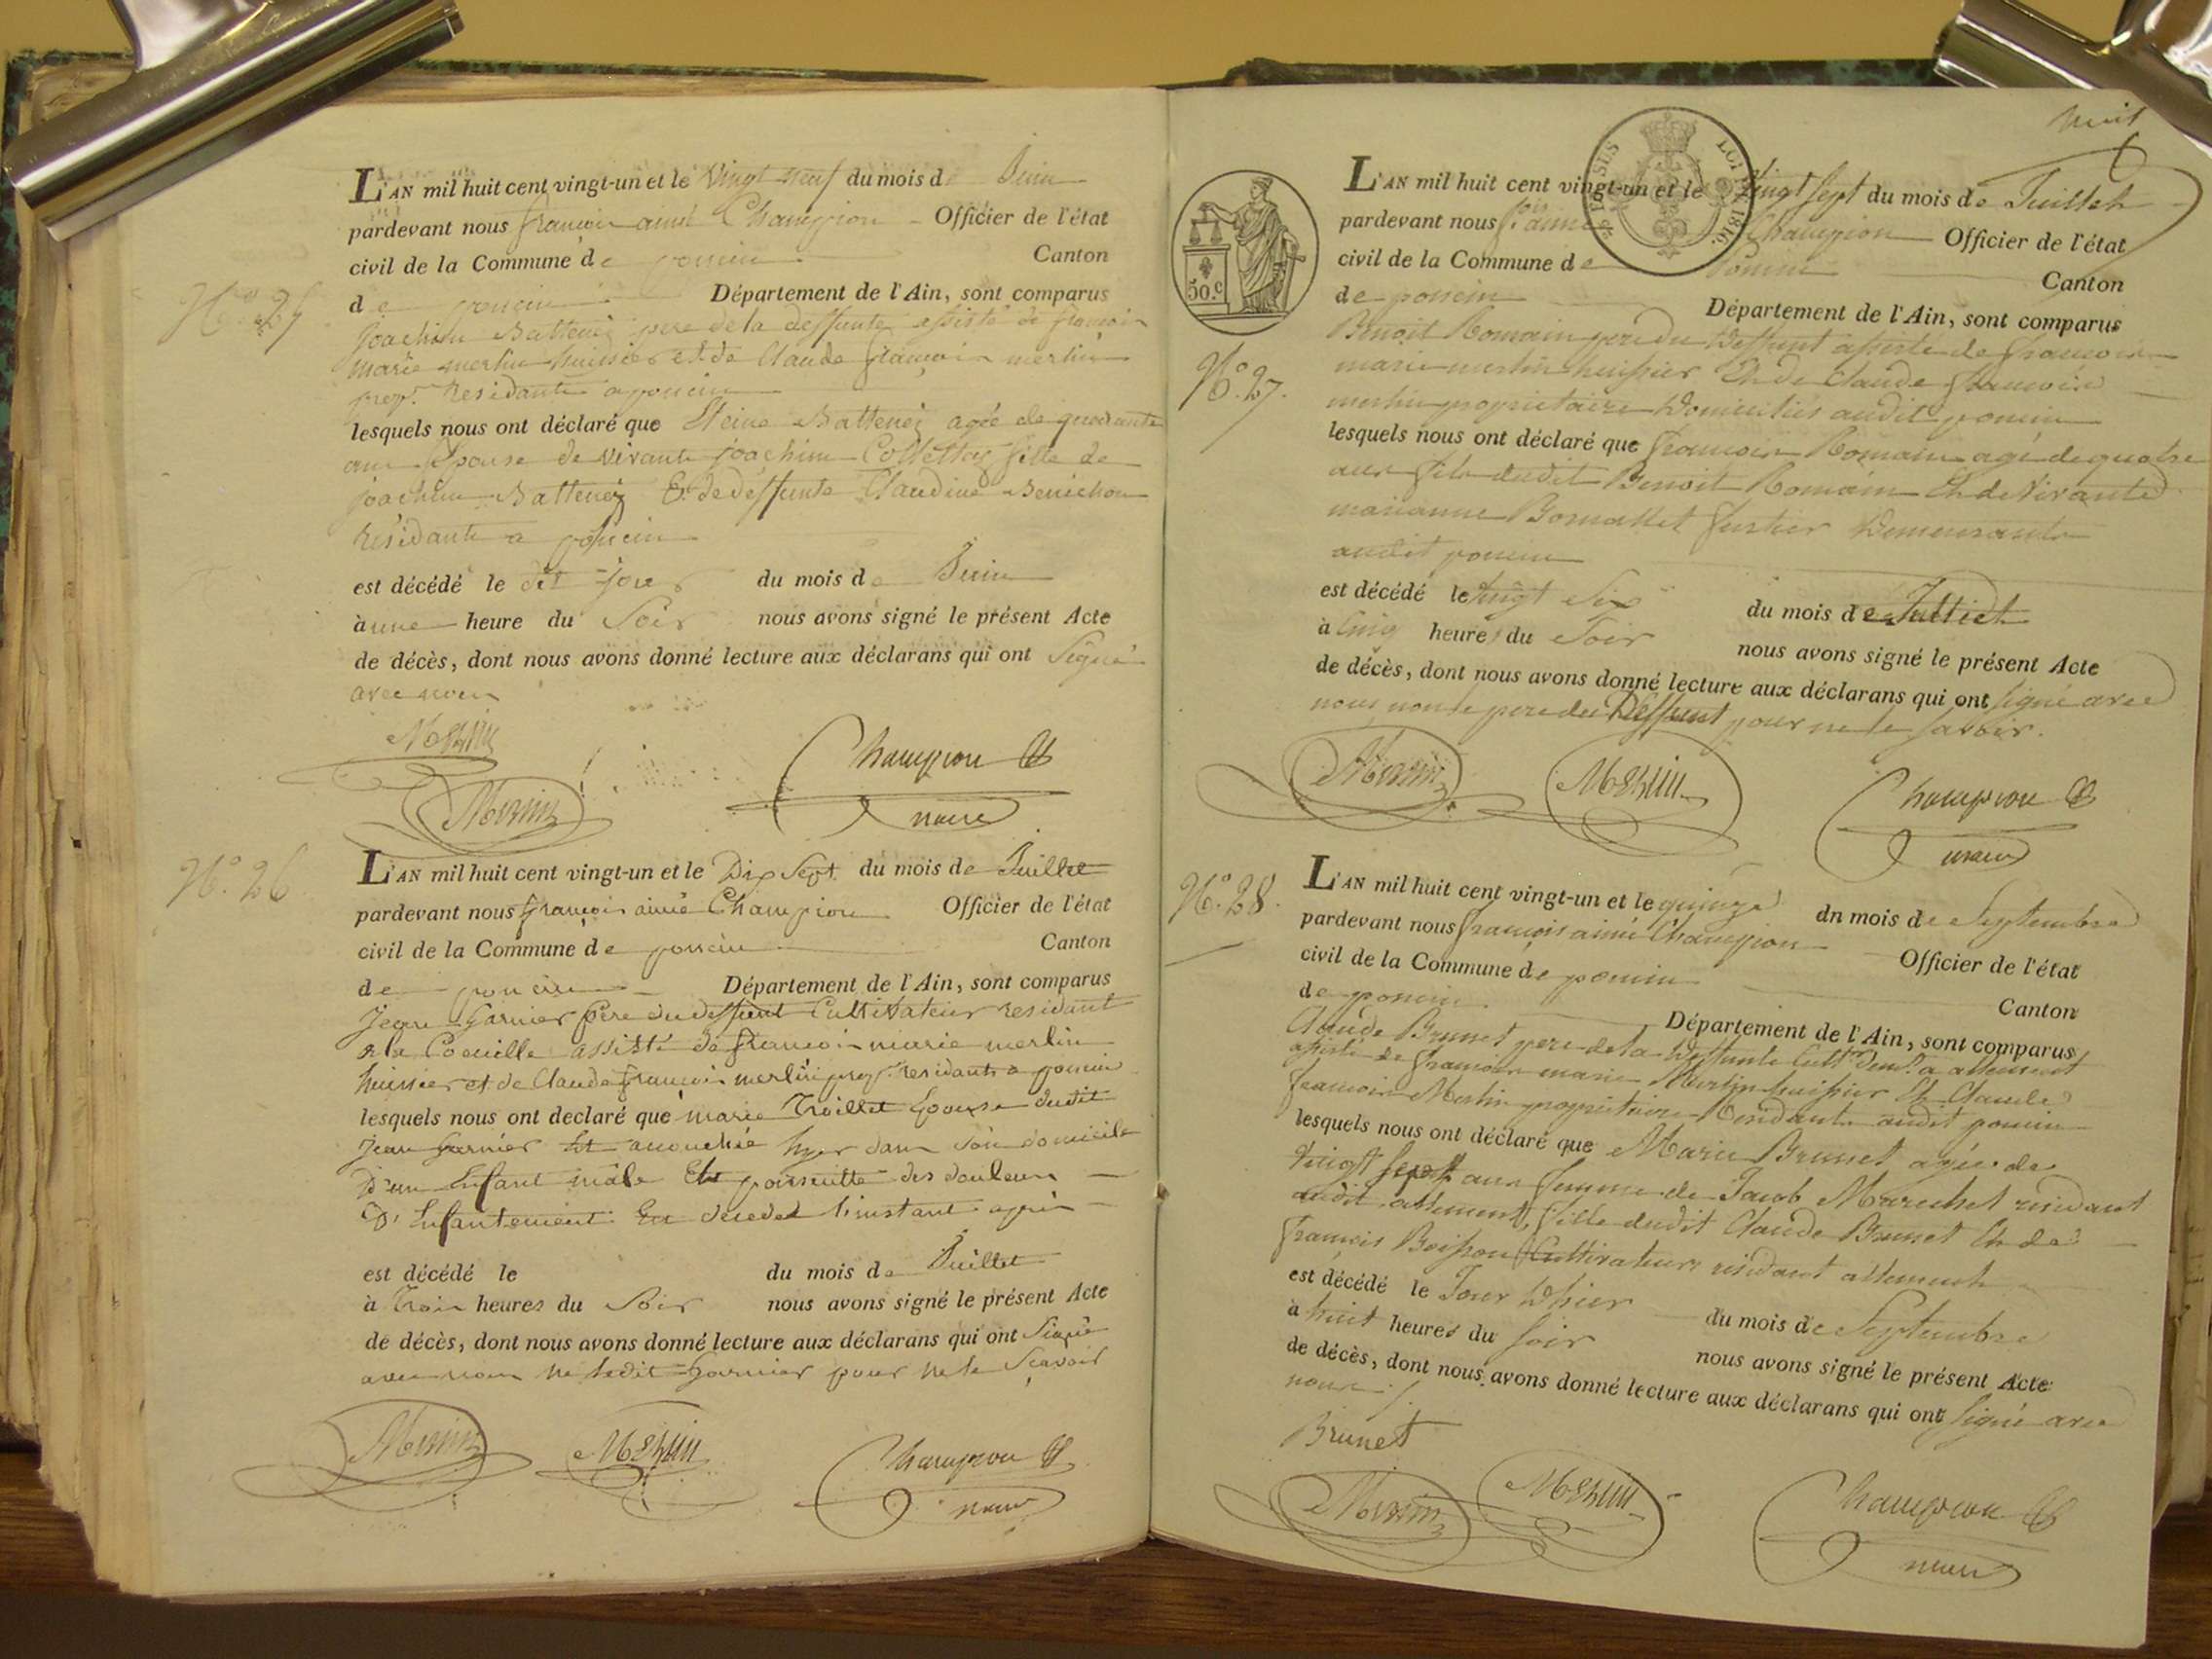 L'AN mil huit cent vingt-un et le Vingt neuf du mois de Juin
pardevant nous françois aimé Champion Officier de l'état
civil de la Commune de poncin Canton
de poncin Département de l'Ain, sont comparus
N.o 25
joachim Battenéz pere de la deffunte assisté de françois
marie merlin huissier et de Claude françois merlin
prop.re Residants a poncin
lesquels nous ont déclaré que Battenéz agée de quarante
ans Epouse de vivante joachim fille de
joachim Battenéz Et de deffunte Claudine Benichon
Résidante a poncin
est décédé le dit jour du mois de Juin
à une heure du Soir nous avons signé le présent Acte
de décès, dont nous avons donné lecture aux déclarans qui ont Signé
avec nous
Merlin
Merlin
Champion
maire
N.o 26
L'AN mil huit cent vingt-un et le Dix Sept du mois de Juillet
pardevant nous françois aimé Champion Officier de l'état
civil de la Commune de poncin Canton
de poncin Département de l'Ain, sont comparus
Jean Garnier Père du deffunt Cultivateur residant
a la Coeuille assisté de françois marie merlin
huissier et de Claude françois merlin prop.re residants a poncin
lesquels nous ont declaré que marie Troillet Epouse dudit
Jean Garnier Est accouchée hyer dans son domicile
D'un Enfant mâle Et poursuitte des douleurs
D'Enfantement Est decedé l'instant après
est décédé le du mois de Juillet
à Trois heures du Soir nous avons signé le présent Acte
de décès, dont nous avons donné lecture aux déclarans qui ont Signé
avec nous ne ledit Garnier pour ne le Scavoir
Merlin Merlin Champion
maire
huit
LOI DE 1816.
50.c
L'AN mil huit cent vingt-un et le Vingt Sept du mois de Juillet
pardevant nous f.ois aimé Champion Officier de l'état
civil de la Commune de Poncin Canton
de poncin Département de l'Ain, sont comparus
N.o 27.
Benoit Romain pere du Deffunt assisté de françois
marie merlin huissier Et de Claude françois
merlin proprietaire Domiciliés audit poncin
lesquels nous ont déclaré que françois Romain agé de quatre
ans fils dudit Benoit Romain Et de Vivante
marianne Demeurants
audit poncin
est décédé le Vingt Six du mois de Julliet
à Cinq heures du Soir nous avons signé le présent Acte
de décès, dont nous avons donné lecture aux déclarans qui ont Signé avec
nous non le pere du Deffunt pour ne le savoir.
Merlin Merlin Champion
maire
N.o 28.
L'AN mil huit cent vingt-un et le quinze dn mois de Septembre
pardevant nous françois aimé Champion Officier de l'état
civil de la Commune de poncin Canton
de poncin Département de l'Ain, sont comparus
Claude Brunet pere de la Deffunte Cult.r dem.t a allement
assisté de françois marie Merlin huissier Et Claude
françois Merlin proprietaire Residants audit poncin
lesquels nous ont déclaré que Marie Brunet agée de
Vingt Sept ans femme de Jacob Marechet residant
audit allement, fille dudit Claude Brunet Et de
francois Boisson Cultivateurs residant allement
est décédé le Jour D'hier du mois de Septembre
à huit heures du Soir nous avons signé le présent Acte
de décès, dont nous avons donné lecture aux déclarans qui ont Signé avec
nous
Brunet
Merlin Merlin Champion
maire